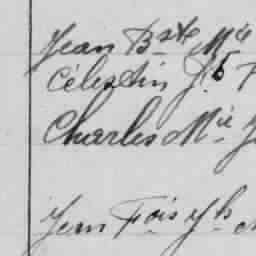 Jean Bste Mie
Célestin Jh
Charles Mie
Jean Fois Jh